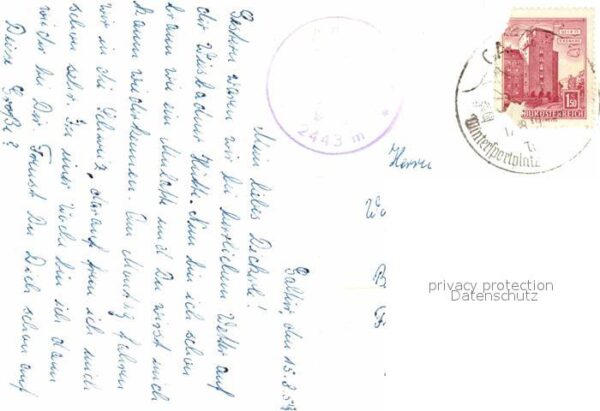 Galtür, den 15.8.59
Mein liebes Deckerle!
Gestern waren wir bei herrlichem Wetter auf
der Wiesbadner Hütte. Nun bin ich schon
braun wie ein und Du wirst mich
kaum wiederkennen. Am Montag fahren
wir in die Schweiz, darauf freu ich mich
schon sehr. In einer Woche bin ich dann
wieder bei Dir. Freust Du Dich schon auf
Diese Größe?
2443 m *
Herrn
1.50
REPUBLIK ÖSTERREICH
Wintersportplatz
privacy protection
Datenschutz